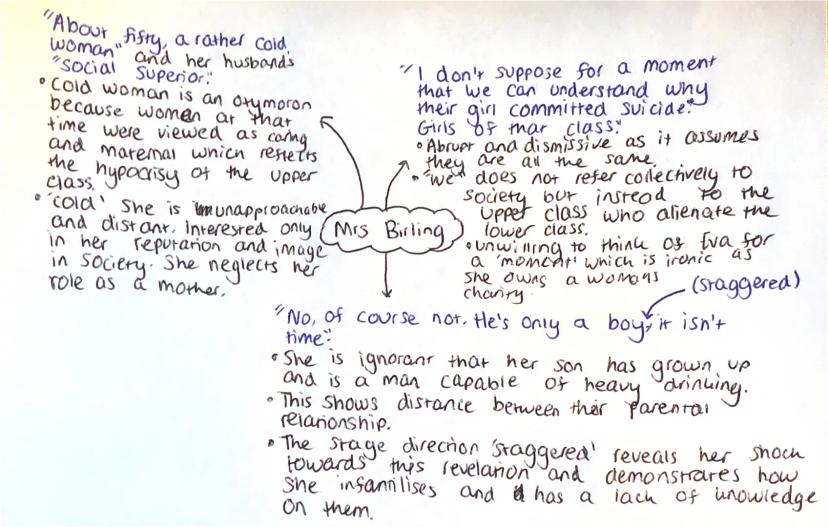 "About fifty, a rather cold
woman" and her husbands
"social superior."
• Cold woman is an oxymoron
because women at that
time were viewed as caring
and maternal which reflects
the hypocrisy of the upper
class.
• 'cold' She is unapproachable
and distant. Interested only
in her reputation and image
in society. She neglects her
role as a mother.
"I don't suppose for a moment
that we can understand why
their girl committed suicide."
Girls of that class."
• Abrupt and dismissive as it assumes
they are all the same.
• "we" does not refer collectively to
society but instead to the
upper class who alienate the
lower class.
• unwilling to think of Eva for
a 'moment' which is ironic as
she owns a womans
charity.
Mrs Birling
(staggered)
"No, of course not. He's only a boy, it isn't
time."
• She is ignorant that her son has grown up
and is a man capable of heavy drinking.
• This shows distance between their parental
relationship.
• The stage direction 'staggered' reveals her shock
towards this revelation and demonstrates how
she infantilises and has a lack of knowledge
on them.